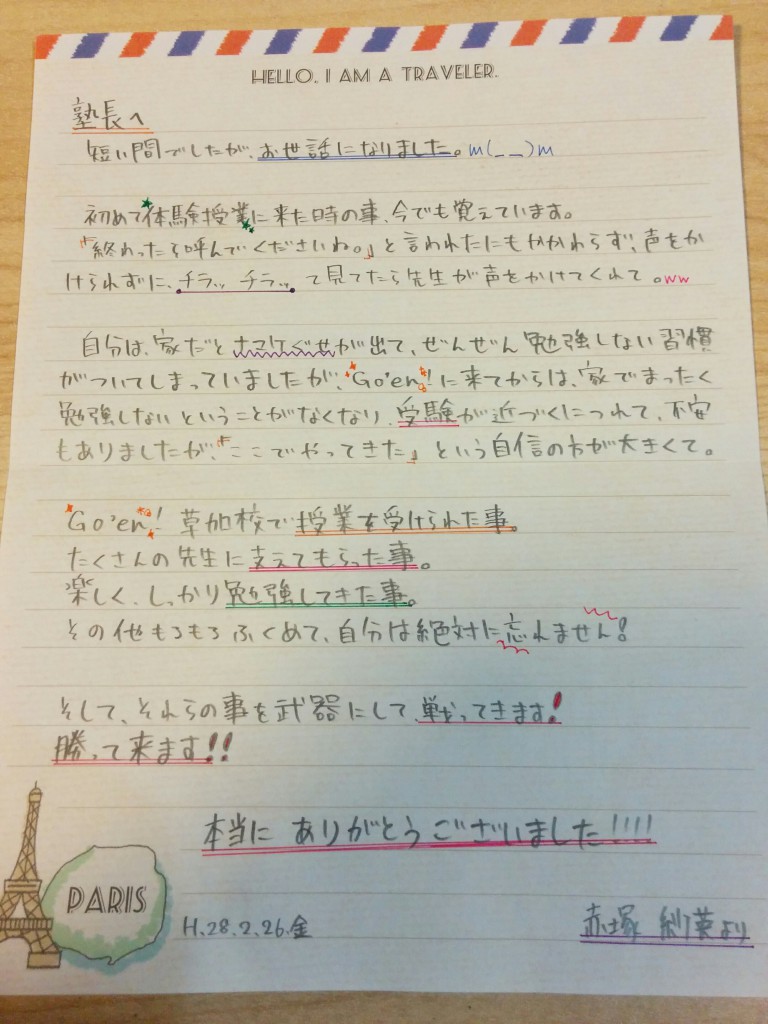 HELLO. I AM A TRAVELER.
塾長へ
短い間でしたが、お世話になりました。m(__)m
初めて体験授業に来た時の事、今でも覚えています。
「終わったら呼んでくださいね。」と言われたにもかかわらず、声をか
けられずに、チラッ チラッ って見てたら先生が声をかけてくれて。ww
自分は、家だとナマケぐせが出て、ぜんぜん勉強しない習慣
がついてしまっていましたが、Go'en!に来てからは、家でまったく
勉強しないということがなくなり、受験が近づくにつれて、不安
もありましたが、「ここでやってきた」という自信の方が大きくて。
Go'en! 草加校で授業を受けられた事。
たくさんの先生に支えてもらった事。
楽しく、しっかり勉強してきた事。
その他もろもろふくめて、自分は絶対に忘れません!
そして、それらの事を武器にして、戦ってきます!
勝って来ます!!
本当に ありがとうございました!!!!
PARIS
H.28.2.26.金
赤塚 より